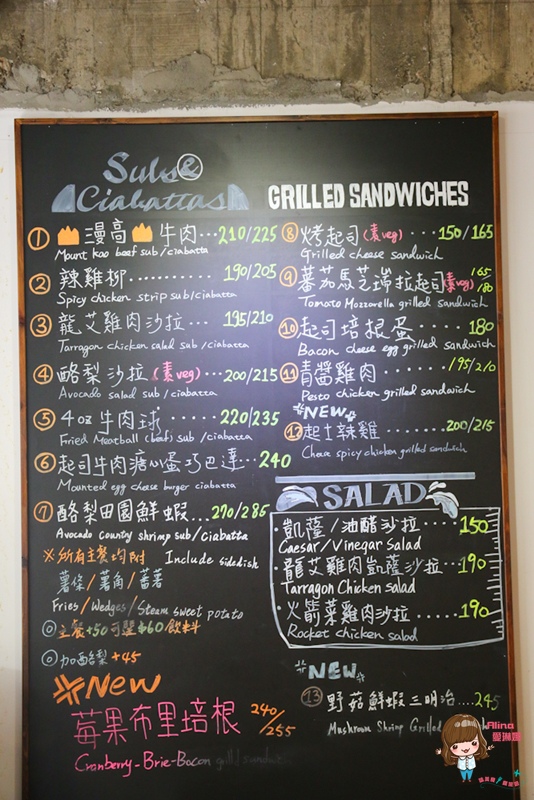 Subs &
Ciabattas
① 漫高 牛肉 ... 210/225
Mount kao beef sub/ciabatta
② 辣雞柳 ............ 190/205
Spicy chicken strip sub/ciabatta
③ 龍艾雞肉沙拉 ... 195/210
Tarragon chicken salad sub/ciabatta
④ 酪梨沙拉(素veg) ... 200/215
Avocado salad sub/ciabatta
⑤ 4oz牛肉球 ........ 220/235
Fried Meatball (beef) sub/ciabatta
⑥ 起司牛肉溏心蛋巧巴達 .. 240
Mounted egg cheese burger ciabatta
⑦ 酪梨田園鮮蝦 ... 270/285
Avocado County shrimp sub/ciabatta
※所有主餐均附 Include sidedish
薯條/薯角/蕃薯
Fries/Wedges/Steam sweet potato
◎主餐+50可選$60飲料
◎加酪梨+45
New
莓果布里培根 240/255
Cranberry-Brie-Bacon grill sandwich
GRILLED SANDWICHES
⑧ 烤起司(素veg) ... 150/165
Grilled cheese sandwich
⑨ 蕃茄馬芝瑞拉起司(素veg) 165/180
Tomato Mozzarella grilled sandwich
⑩ 起司培根蛋 ......... 180
Bacon cheese egg grilled sandwich
⑪ 青醬雞肉 ........ 195/210
Pesto chicken grilled sandwich
NEW
⑫ 起士辣雞 ....... 200/215
Cheese spicy chicken grilled sandwich
SALAD
· 凱薩/油醋沙拉 .... 150
Caesar/Vinegar Salad
· 龍艾雞肉凱薩沙拉 ... 190
Tarragon Chicken salad
· 火箭菜雞肉沙拉 190
Rocket chicken salad
NEW
⑬ 野菇鮮蝦三明治 .... 245
Mushroom Shrimp Grilled
Alina
愛琳娜